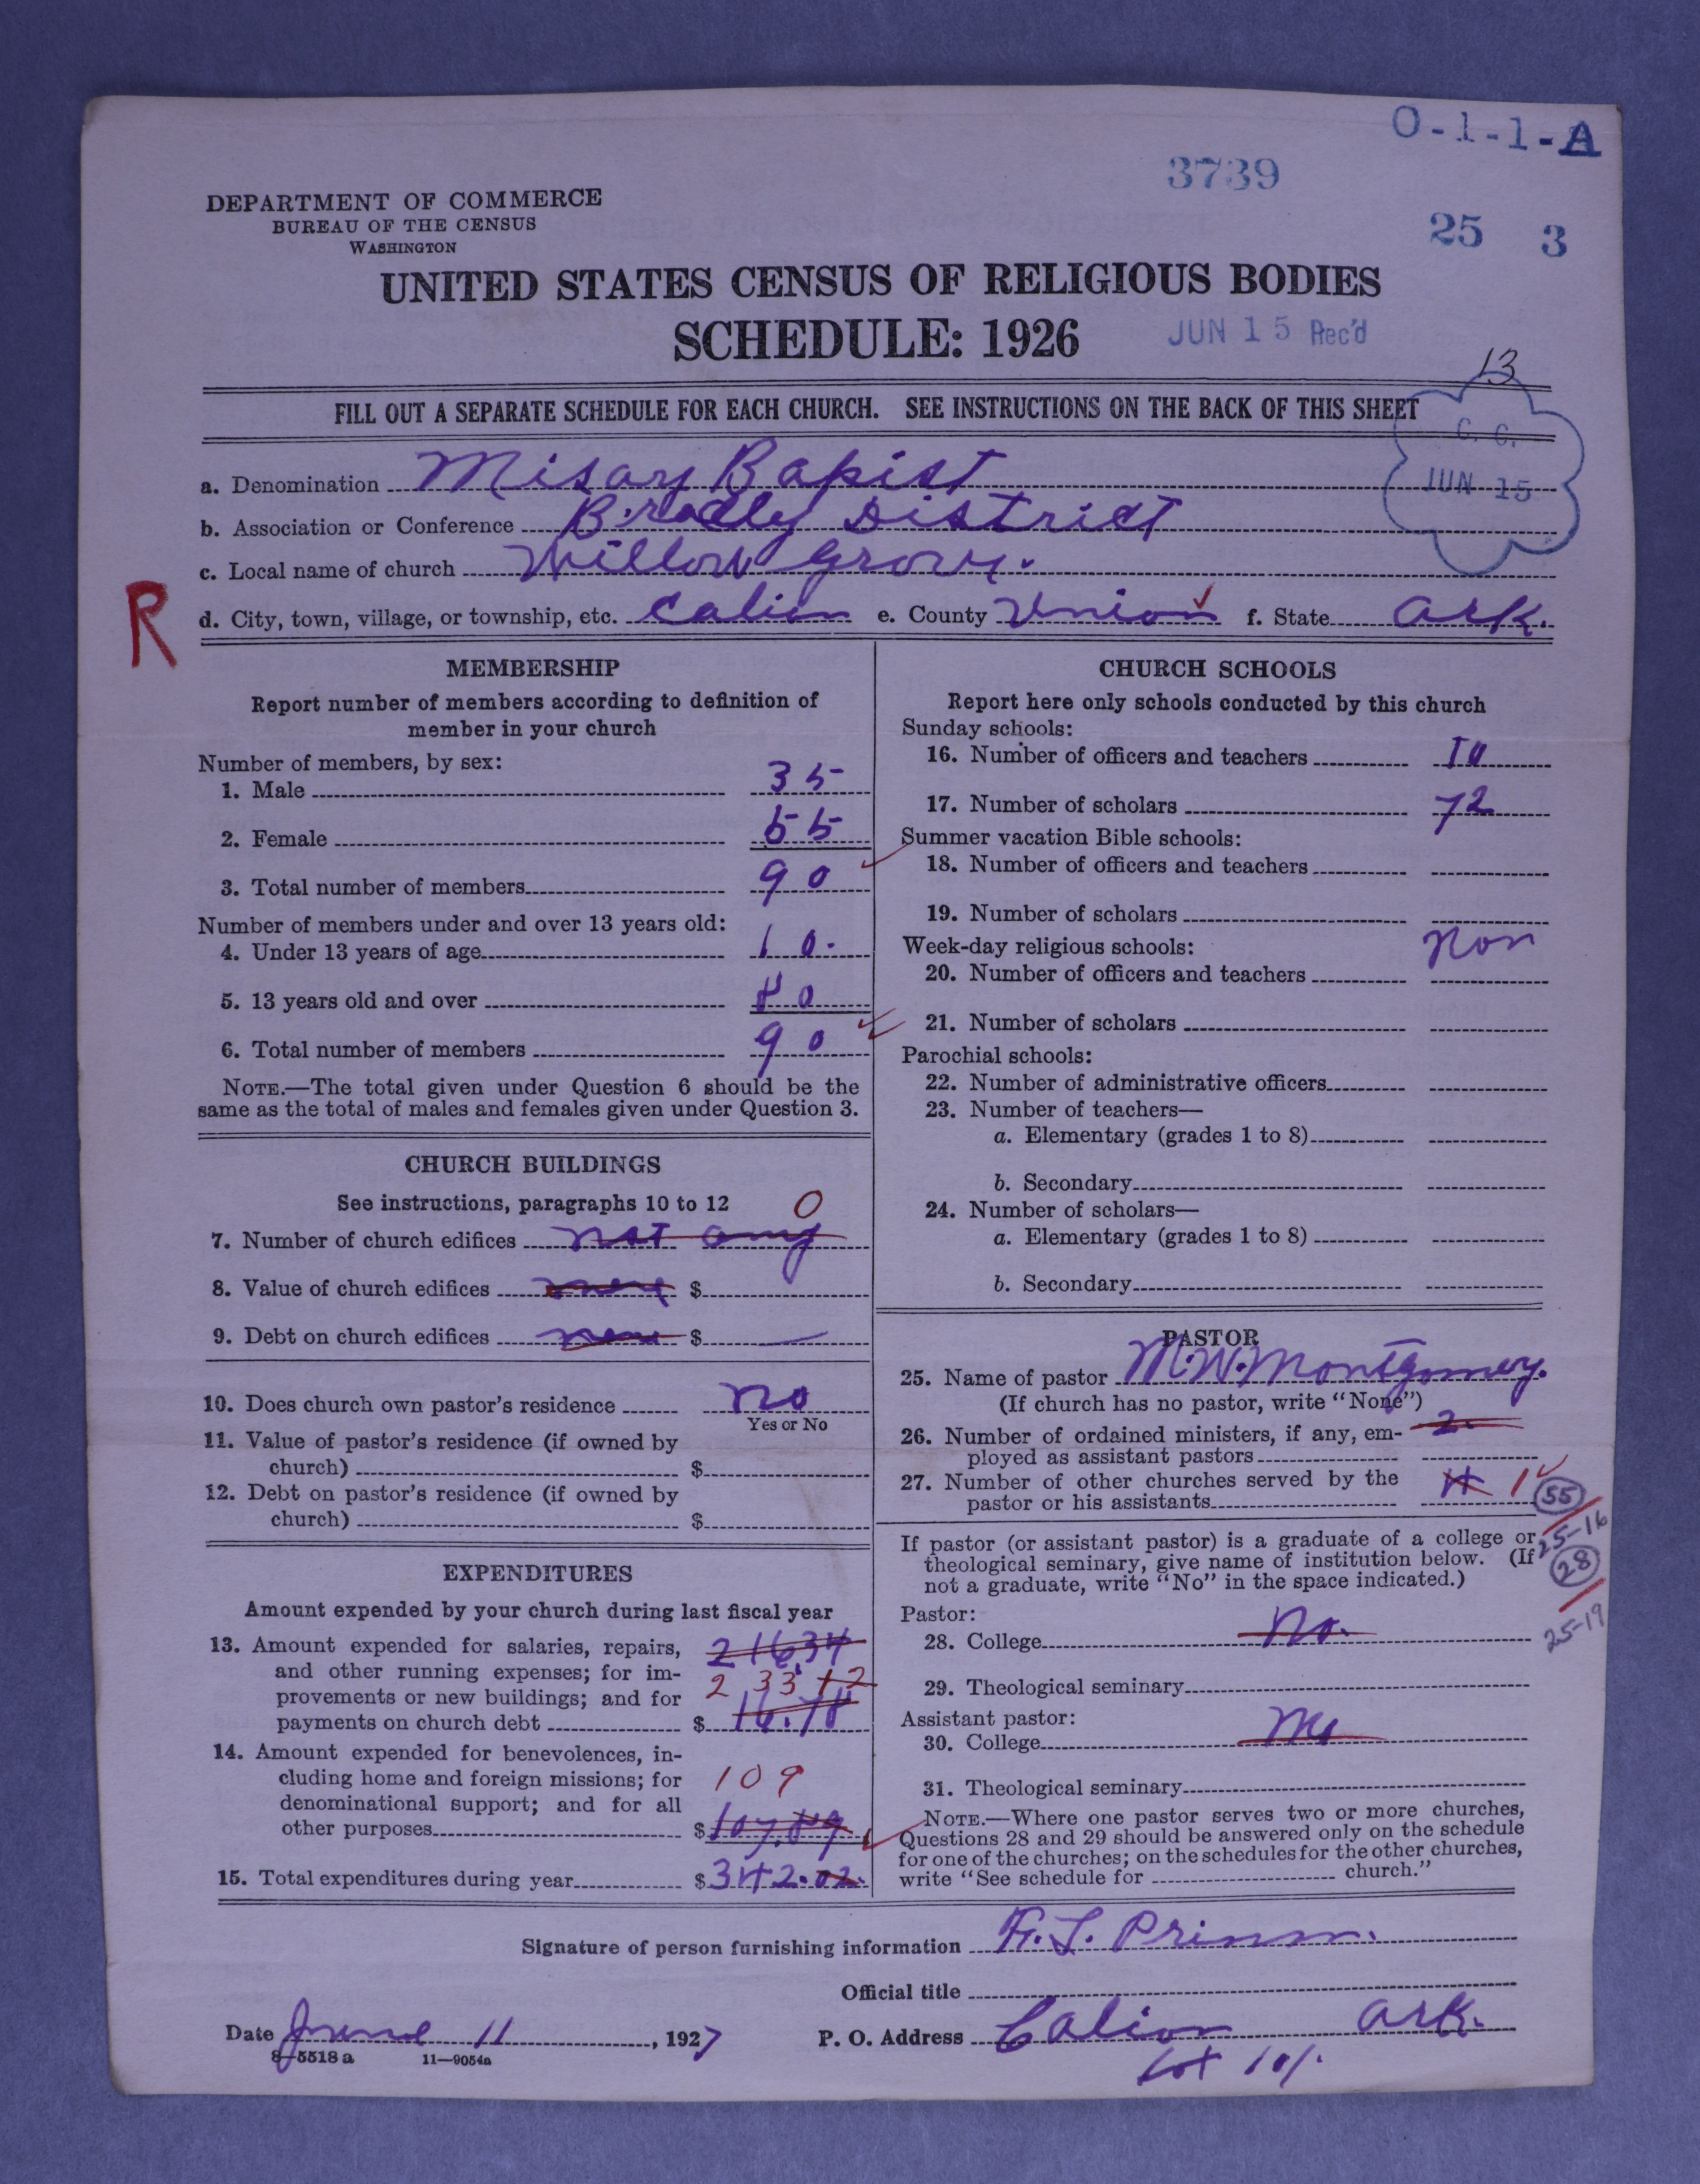 O-1-1-A
3739
25 3
DEPARTMENT OF COMMERCE
BUREAU OF THE CENSUS
WASHINGTON
UNITED STATES CENSUS OF RELIGIOUS BODIES
SCHEDULE: 1926
JUN 15 Rec'd
13
FILL OUT A SEPARATE SCHEDULE FOR EACH CHURCH. SEE INSTRUCTIONS ON THE BACK OF THIS SHEET
C. C.
JUN 15
a. Denomination Misary Bapist
b. Association or Conference Bradly District
c. Local name of church Willow Grove.
R
d. City, town, village, or township, etc. Calion e. County Union f. State Ark.
MEMBERSHIP
Report number of members according to definition of
member in your church
Number of members, by sex:
1. Male 35
2. Female 55
3. Total number of members 90
Number of members under and over 13 years old:
4. Under 13 years of age 10.
5. 13 years old and over 80
6. Total number of members 90
NOTE.—The total given under Question 6 should be the
same as the total of males and females given under Question 3.
CHURCH BUILDINGS
See instructions, paragraphs 10 to 12 0
7. Number of church edifices not any
8. Value of church edifices $
9. Debt on church edifices $
10. Does church own pastor's residence no
Yes or No
11. Value of pastor's residence (if owned by
church) $
12. Debt on pastor's residence (if owned by
church) $
EXPENDITURES
Amount expended by your church during last fiscal year
13. Amount expended for salaries, repairs, 216.34
and other running expenses; for im-
provements or new buildings; and for 233 12
payments on church debt $ 16.78
14. Amount expended for benevolences, in-
cluding home and foreign missions; for 109
denominational support; and for all
other purposes $107.89
15. Total expenditures during year $342.02.
CHURCH SCHOOLS
Report here only schools conducted by this church
Sunday schools:
16. Number of officers and teachers 10
17. Number of scholars 72
Summer vacation Bible schools:
18. Number of officers and teachers
19. Number of scholars
Week-day religious schools: non
20. Number of officers and teachers
21. Number of scholars
Parochial schools:
22. Number of administrative officers
23. Number of teachers—
a. Elementary (grades 1 to 8)
b. Secondary
24. Number of scholars—
a. Elementary (grades 1 to 8)
b. Secondary
PASTOR
25. Name of pastor M.W. Montgomery.
(If church has no pastor, write "None")
26. Number of ordained ministers, if any, em- 2.
ployed as assistant pastors
27. Number of other churches served by the 1
pastor or his assistants
55
25-16
28
25-19
If pastor (or assistant pastor) is a graduate of a college or
theological seminary, give name of institution below. (If
not a graduate, write "No" in the space indicated.)
Pastor:
28. College No.
29. Theological seminary
Assistant pastor:
30. College
31. Theological seminary
NOTE.—Where one pastor serves two or more churches,
Questions 28 and 29 should be answered only on the schedule
for one of the churches; on the schedules for the other churches,
write "See schedule for church."
Signature of person furnishing information
Official title
Date June 11, 1927 P. O. Address Calion Ark.
8—5518 a 11—9054a
101.